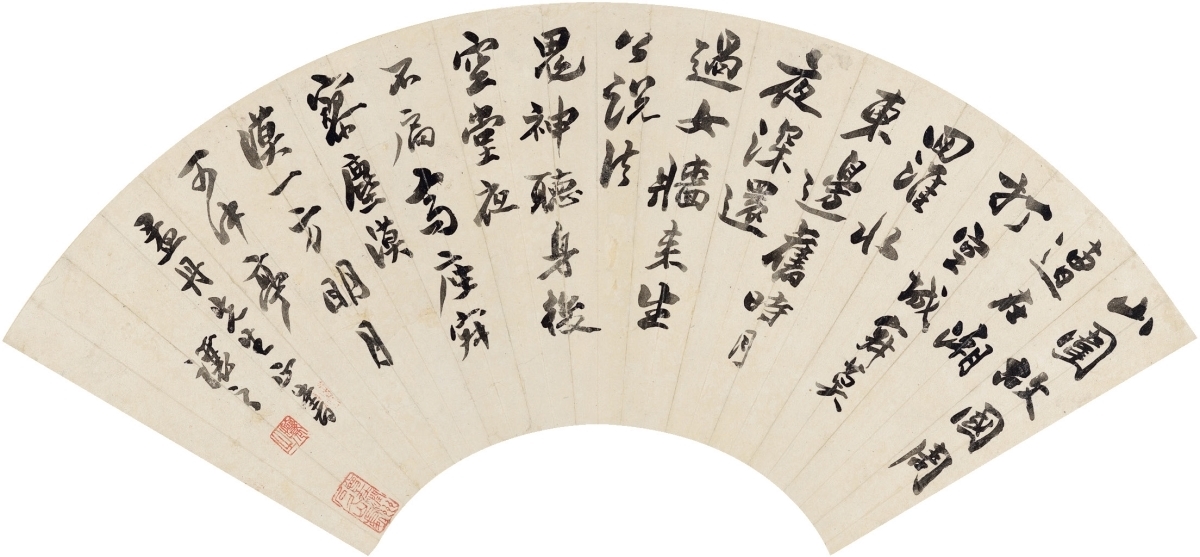 山圍故國周
遭在潮
打空城寂寞
回淮水
東邊舊時月
夜深還
過女牆来生
公說法
鬼神聽身後
空堂夜
不扃高座寂
寥塵漠
漠一方明月
可中亭
孟丹先生
讓之